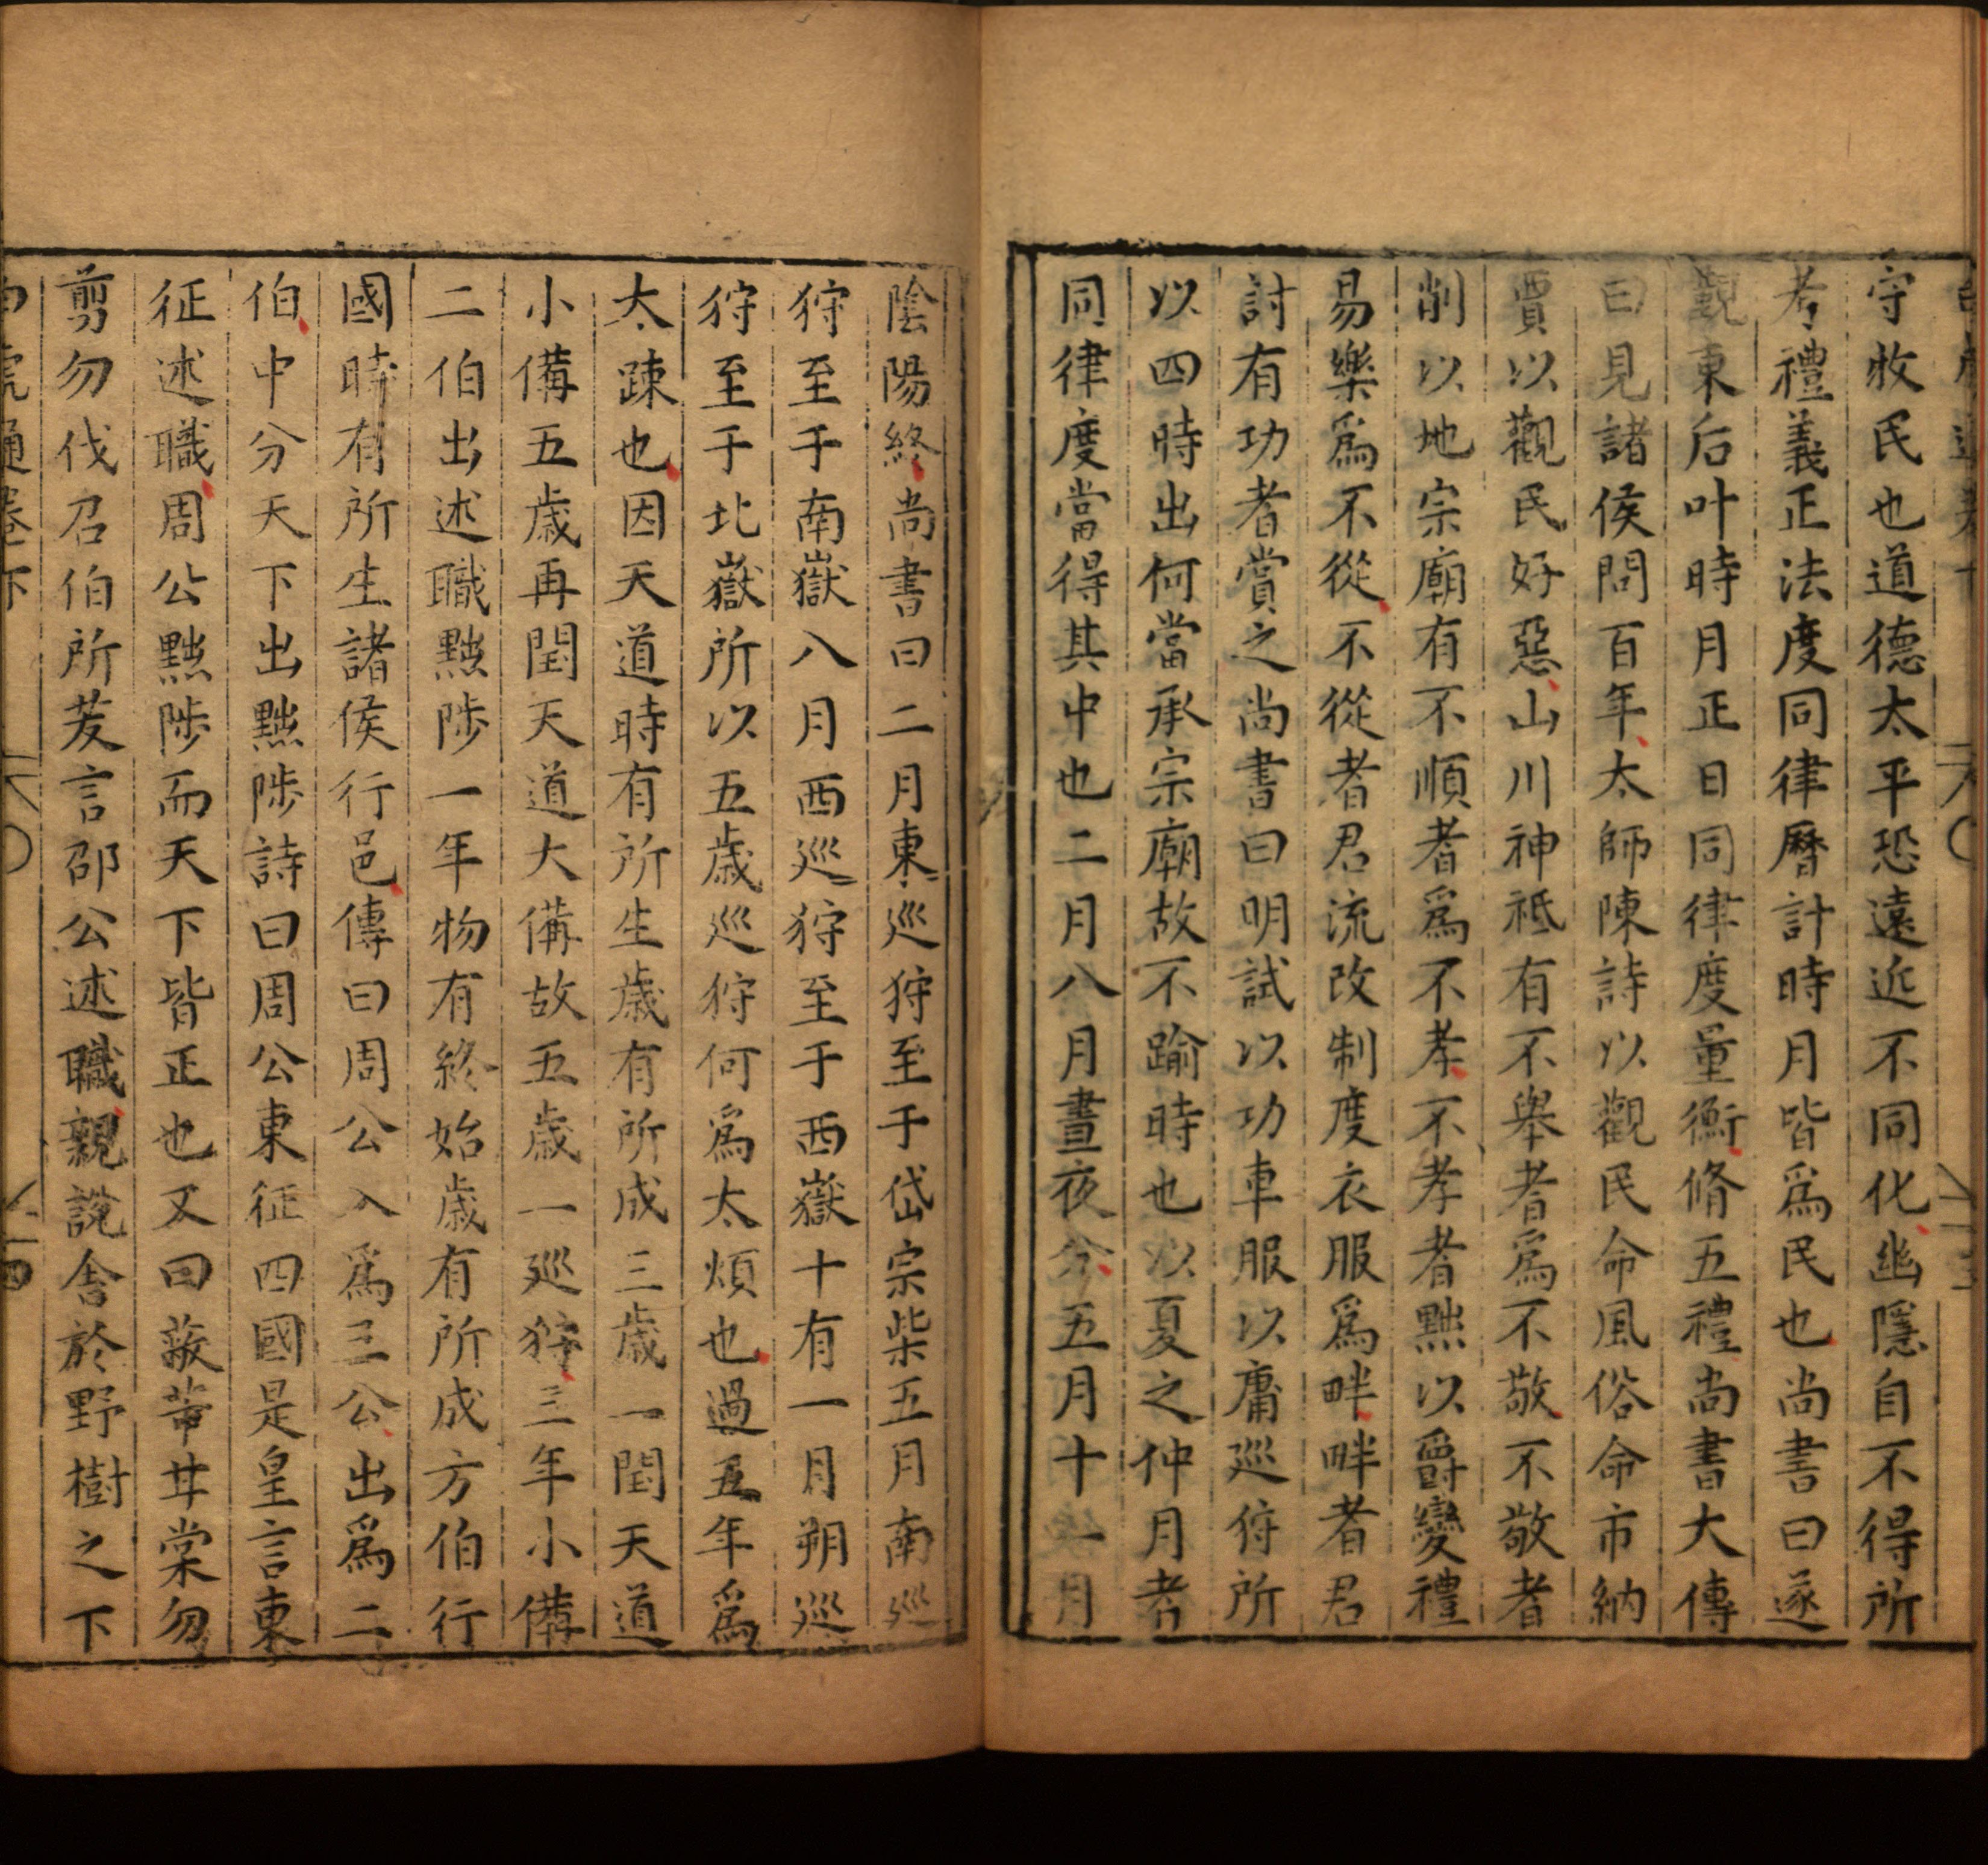 守牧民也道德太平恐遠近不同化幽隱自不得所
考禮義正法度同律曆計時月皆爲民也尚書曰遂
覲東后叶時月正日同律度量衡脩五禮尚書大傳
曰見諸侯問百年太師陳詩以觀民命風俗命市納
賈以觀民好惡山川神祇有不舉者爲不敬不敬者
削以地宗廟有不順者爲不孝不孝者黜以爵變禮
易樂爲不從不從者君流改制度衣服爲畔畔者君
討有功者賞之尚書曰明試以功車服以庸巡狩所
以四時出何當承宗廟故不踰時也以夏之仲月者
同律度當得其中也二月八月晝夜分五月十一月
陰陽終尚書曰二月東巡狩至于岱宗柴五月南巡
狩至于南嶽八月西巡狩至于西嶽十有一月朔巡
狩至于北嶽所以五歲巡狩何爲太煩也過五年爲
太踈也因天道時有所生歲有所成三歲一閏天道
小備五歲再閏天道大備故五歲一巡狩三年小備
二伯出述職黜陟一年物有終始歲有所成方伯行
國時有所生諸侯行邑傳曰周公入爲三公出爲二
伯中分天下出黜陟詩曰周公東征四國是皇言東
征述職周公黜陟而天下皆正也又曰蔽芾甘棠勿
剪勿伐召伯所茇言邵公述職親說舍於野樹之下
白虎通卷下 十四